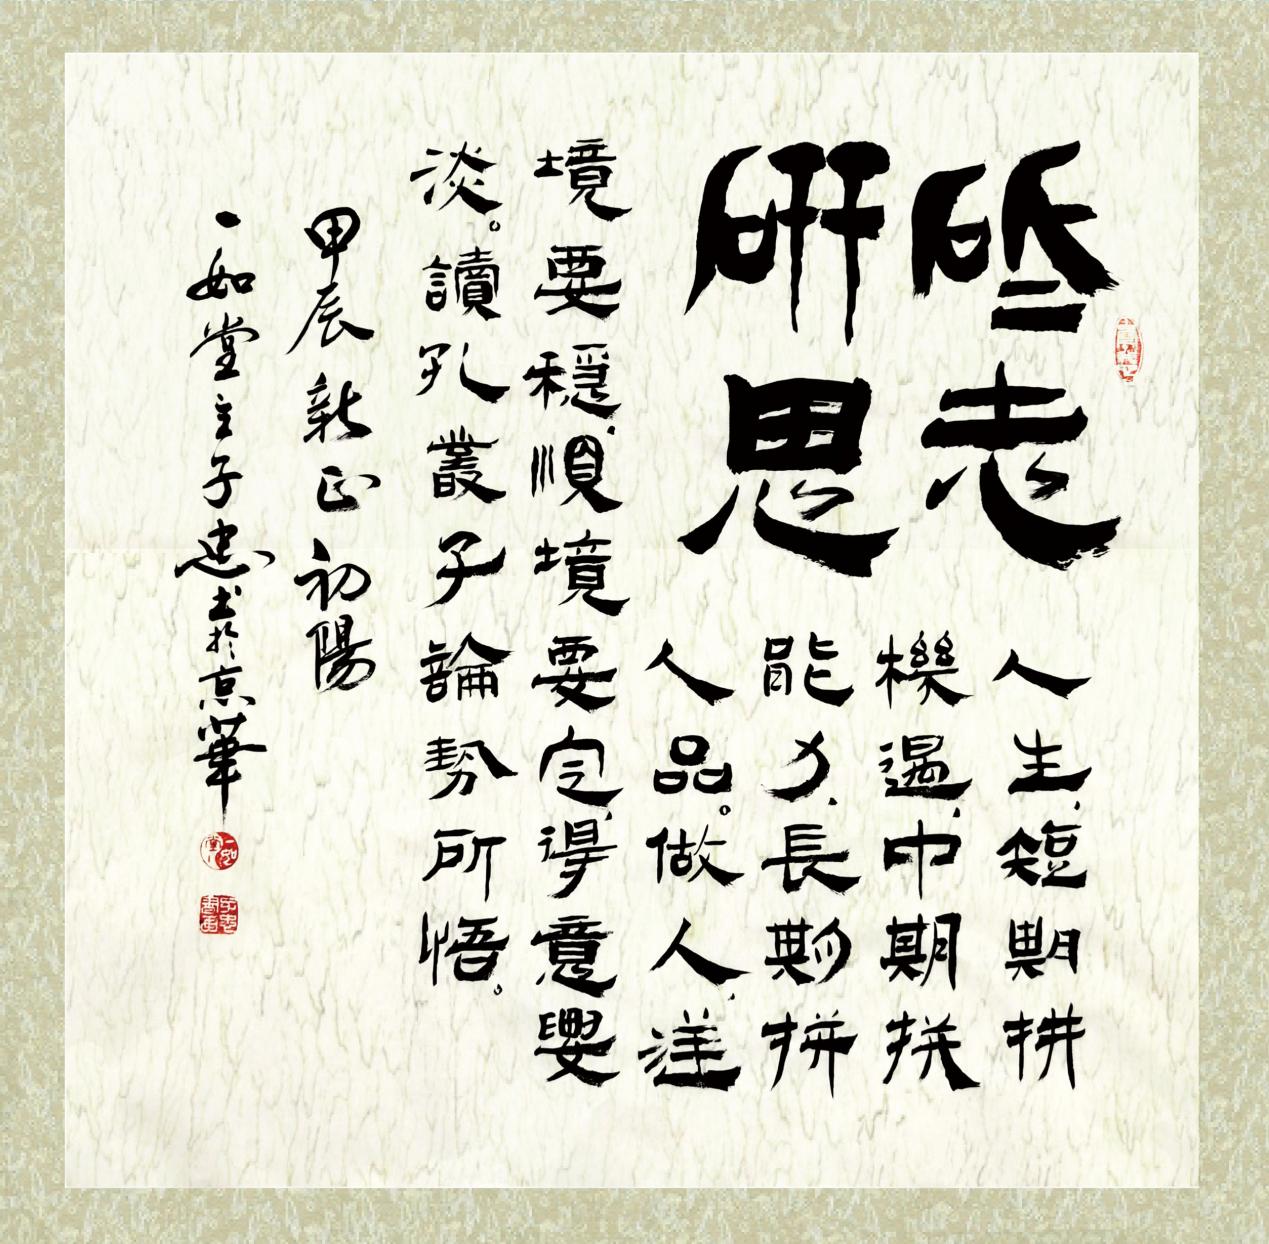 砥志
研思
人生、短期拼
機遇、中期拼
能力、長期拼
人品。做人、逆
境要穩、順境要定、得意要
淡。讀孔叢子論勢所悟。
甲辰新正初陽
一如堂主子忠书於京華
一如堂